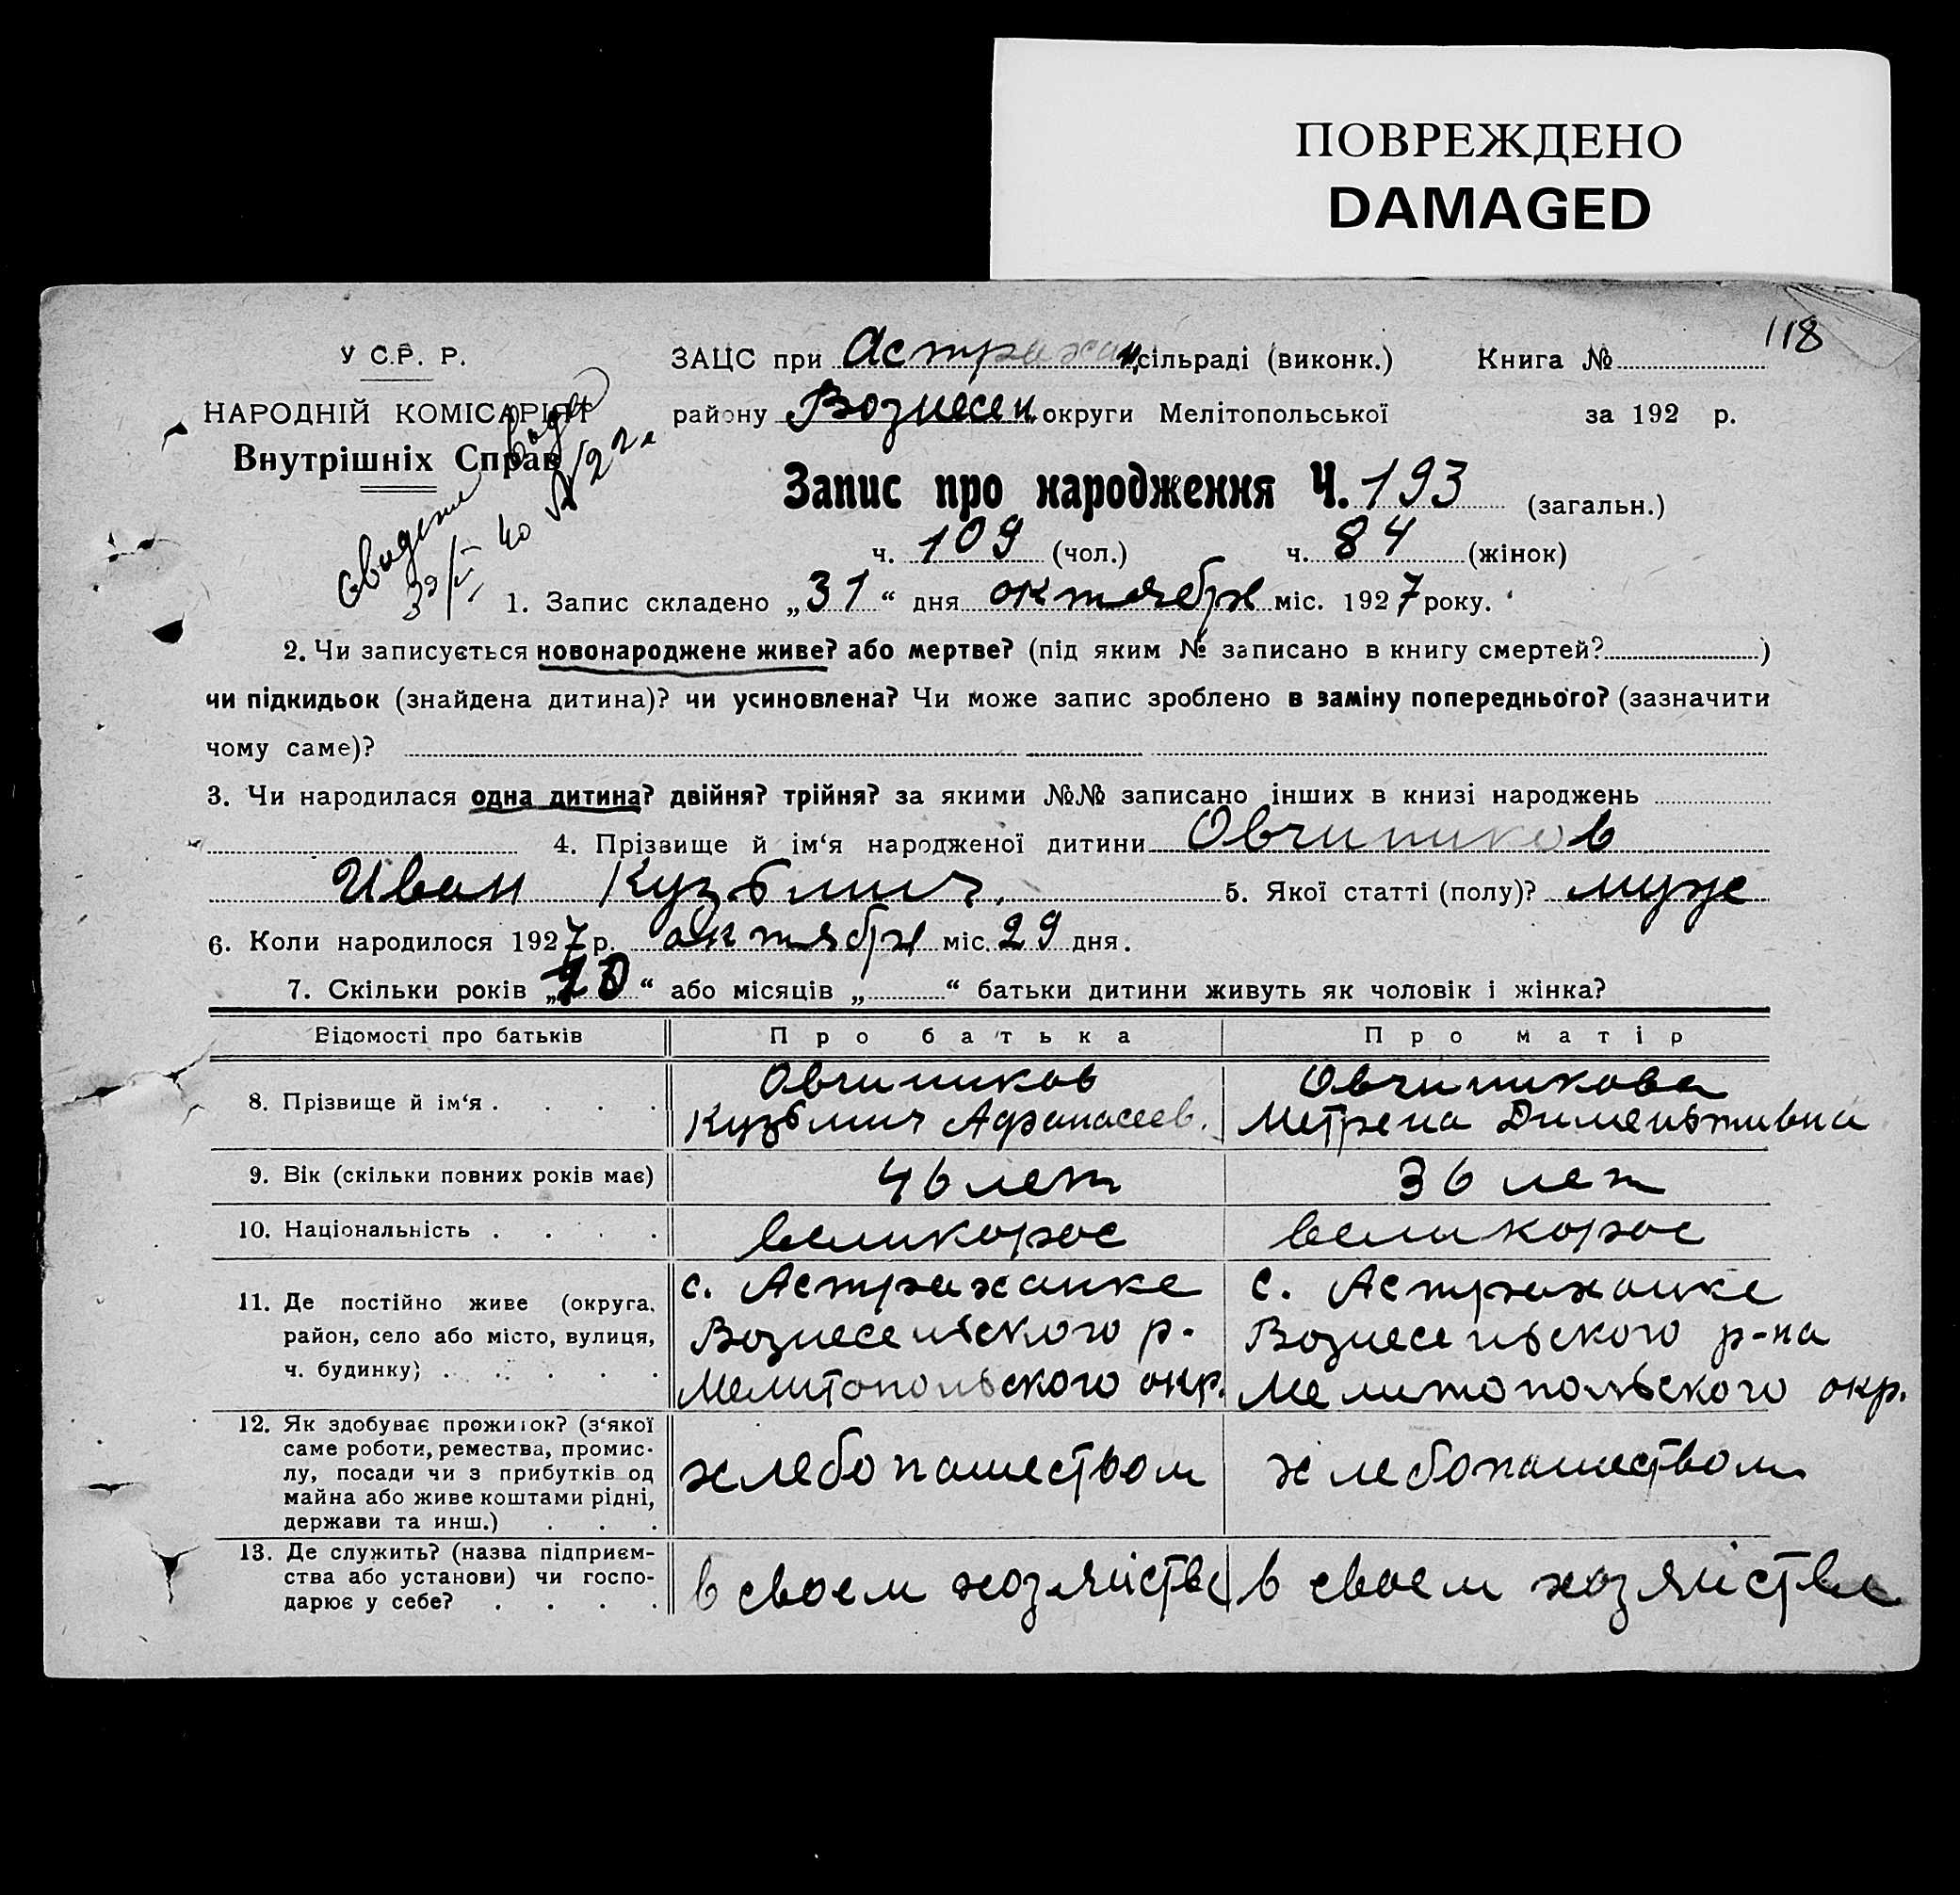 ПОВРЕЖДЕНО
DAMAGED
118
У С.Р. Р.
НАРОДНІЙ КОМІСАРІЯТ
Внутрішніх Справ
ЗАЦС при Астрахан. сільраді (виконк.) Книга №
району Вознесен. округи Мелітопольської за 192 р.
Запис про народження Ч. 193 (загальн.)
ч. 109 (чол.) ч. 84 (жінок)
1. Запис складено „31“ дня октября міс. 1927 року.
2. Чи записується новонароджене живе? або мертве? (під яким № записано в книгу смертей? )
чи підкидьок (знайдена дитина)? чи усиновлена? Чи може запис зроблено в заміну попереднього? (зазначити
чому саме)?
3. Чи народилася одна дитина? двійня? трійня? за якими №№ записано інших в книзі народжень
4. Прізвище й ім‘я народженої дитини Овчиников
Иван Кузьмич. 5. Якої статті (полу)? муже
6. Коли народилося 1927 р. октября міс. 29 дня.
7. Скільки років „20“ або місяців „ “ батьки дитини живуть як чоловік і жінка?
Відомості про батьків Про батька Про матір
8. Прізвище й ім‘я . . . . Овчиников Овчиникова
Кузьмич Афанасеев. Метрена Диментивна
9. Вік (скільки повних років має) 46 лет 36 лет
10. Національність . . . . великорос великорос
11. Де постійно живе (округа, с. Астраханке с. Астраханке
район, село або місто, вулиця, Вознесеньского р. Вознесеньского р-на
ч. будинку) . . . . . Мелитопольского окр. Мелитопольского окр.
12. Як здобуває прожиток? (з‘якої
саме роботи, ремества, промис-
лу, посади чи з прибутків од хлебопашеством хлебопашеством
майна або живе коштами рідні,
держави та инш.) . . .
13. Де служить? (назва підприєм-
ства або установи) чи госпо- в своем хозяистве в своем хозяистве
дарює у себе? . . . .